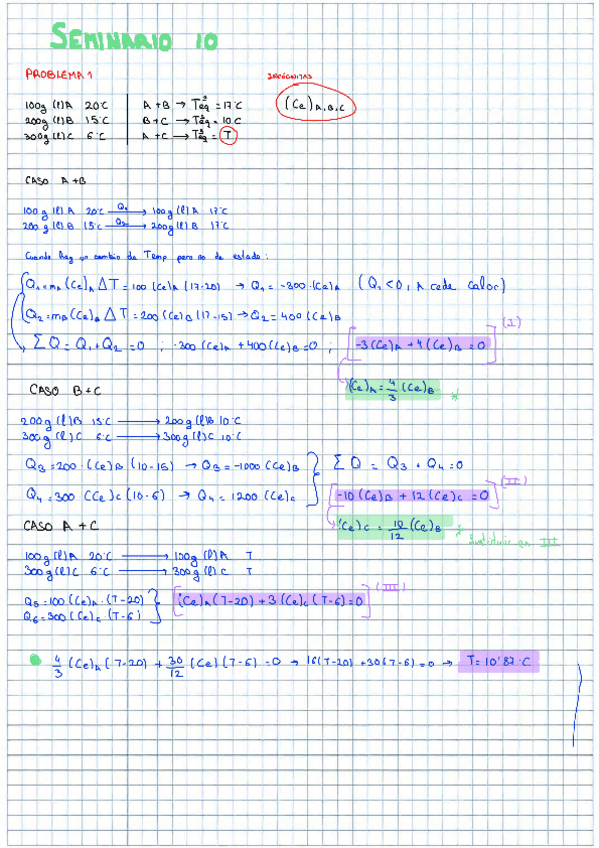 SEMINARIO 10
PROBLEMA 1
INCÓGNITAS
100g (l) A 20°C A + B → Tªeq = 17°C (Ce)A,B,C
200g (l) B 15°C B + C → Tªeq = 10°C
300g (l) C 6°C A + C → Tªeq = T
CASO A+B
100g (l) A 20°C Q1 → 100g (l) A 17°C
200g (l) B 15°C Q2 → 200g (l) B 17°C
Cuando hay un cambio de Temp pero no de estado:
Q1 = mA (Ce)A ΔT = 100 (Ce)A (17-20) → Q1 = -300 · (Ce)A (Q1 < 0, A cede calor)
Q2 = mB (Ce)B ΔT = 200 (Ce)B (17-15) → Q2 = 400 (Ce)B
Σ Q = Q1 + Q2 = 0 ; -300 (Ce)A + 400 (Ce)B = 0 ; [-3 (Ce)A + 4 (Ce)B = 0] (I)
(Ce)A = 4/3 (Ce)B *
CASO B+C
200g (l) B 15°C → 200g (l) B 10°C
300g (l) C 6°C → 300g (l) C 10°C
Q3 = 200 · (Ce)B (10-15) → Q3 = -1000 (Ce)B } Σ Q = Q3 + Q4 = 0
Q4 = 300 (Ce)C (10-6) → Q4 = 1200 (Ce)C [-10 (Ce)B + 12 (Ce)C = 0] (II)
(Ce)C = 10/12 (Ce)B * Sustituir en III
CASO A+C
100g (l) A 20°C → 100g (l) A T
300g (l) C 6°C → 300g (l) C T
Q5 = 100 (Ce)A · (T-20) } [(Ce)A (T-20) + 3 (Ce)C (T-6) = 0] (III)
Q6 = 300 (Ce)C (T-6)
4/3 (Ce)A (T-20) + 30/12 (Ce) (T-6) = 0 → 16(T-20) + 30(T-6) = 0 → T = 10'87°C